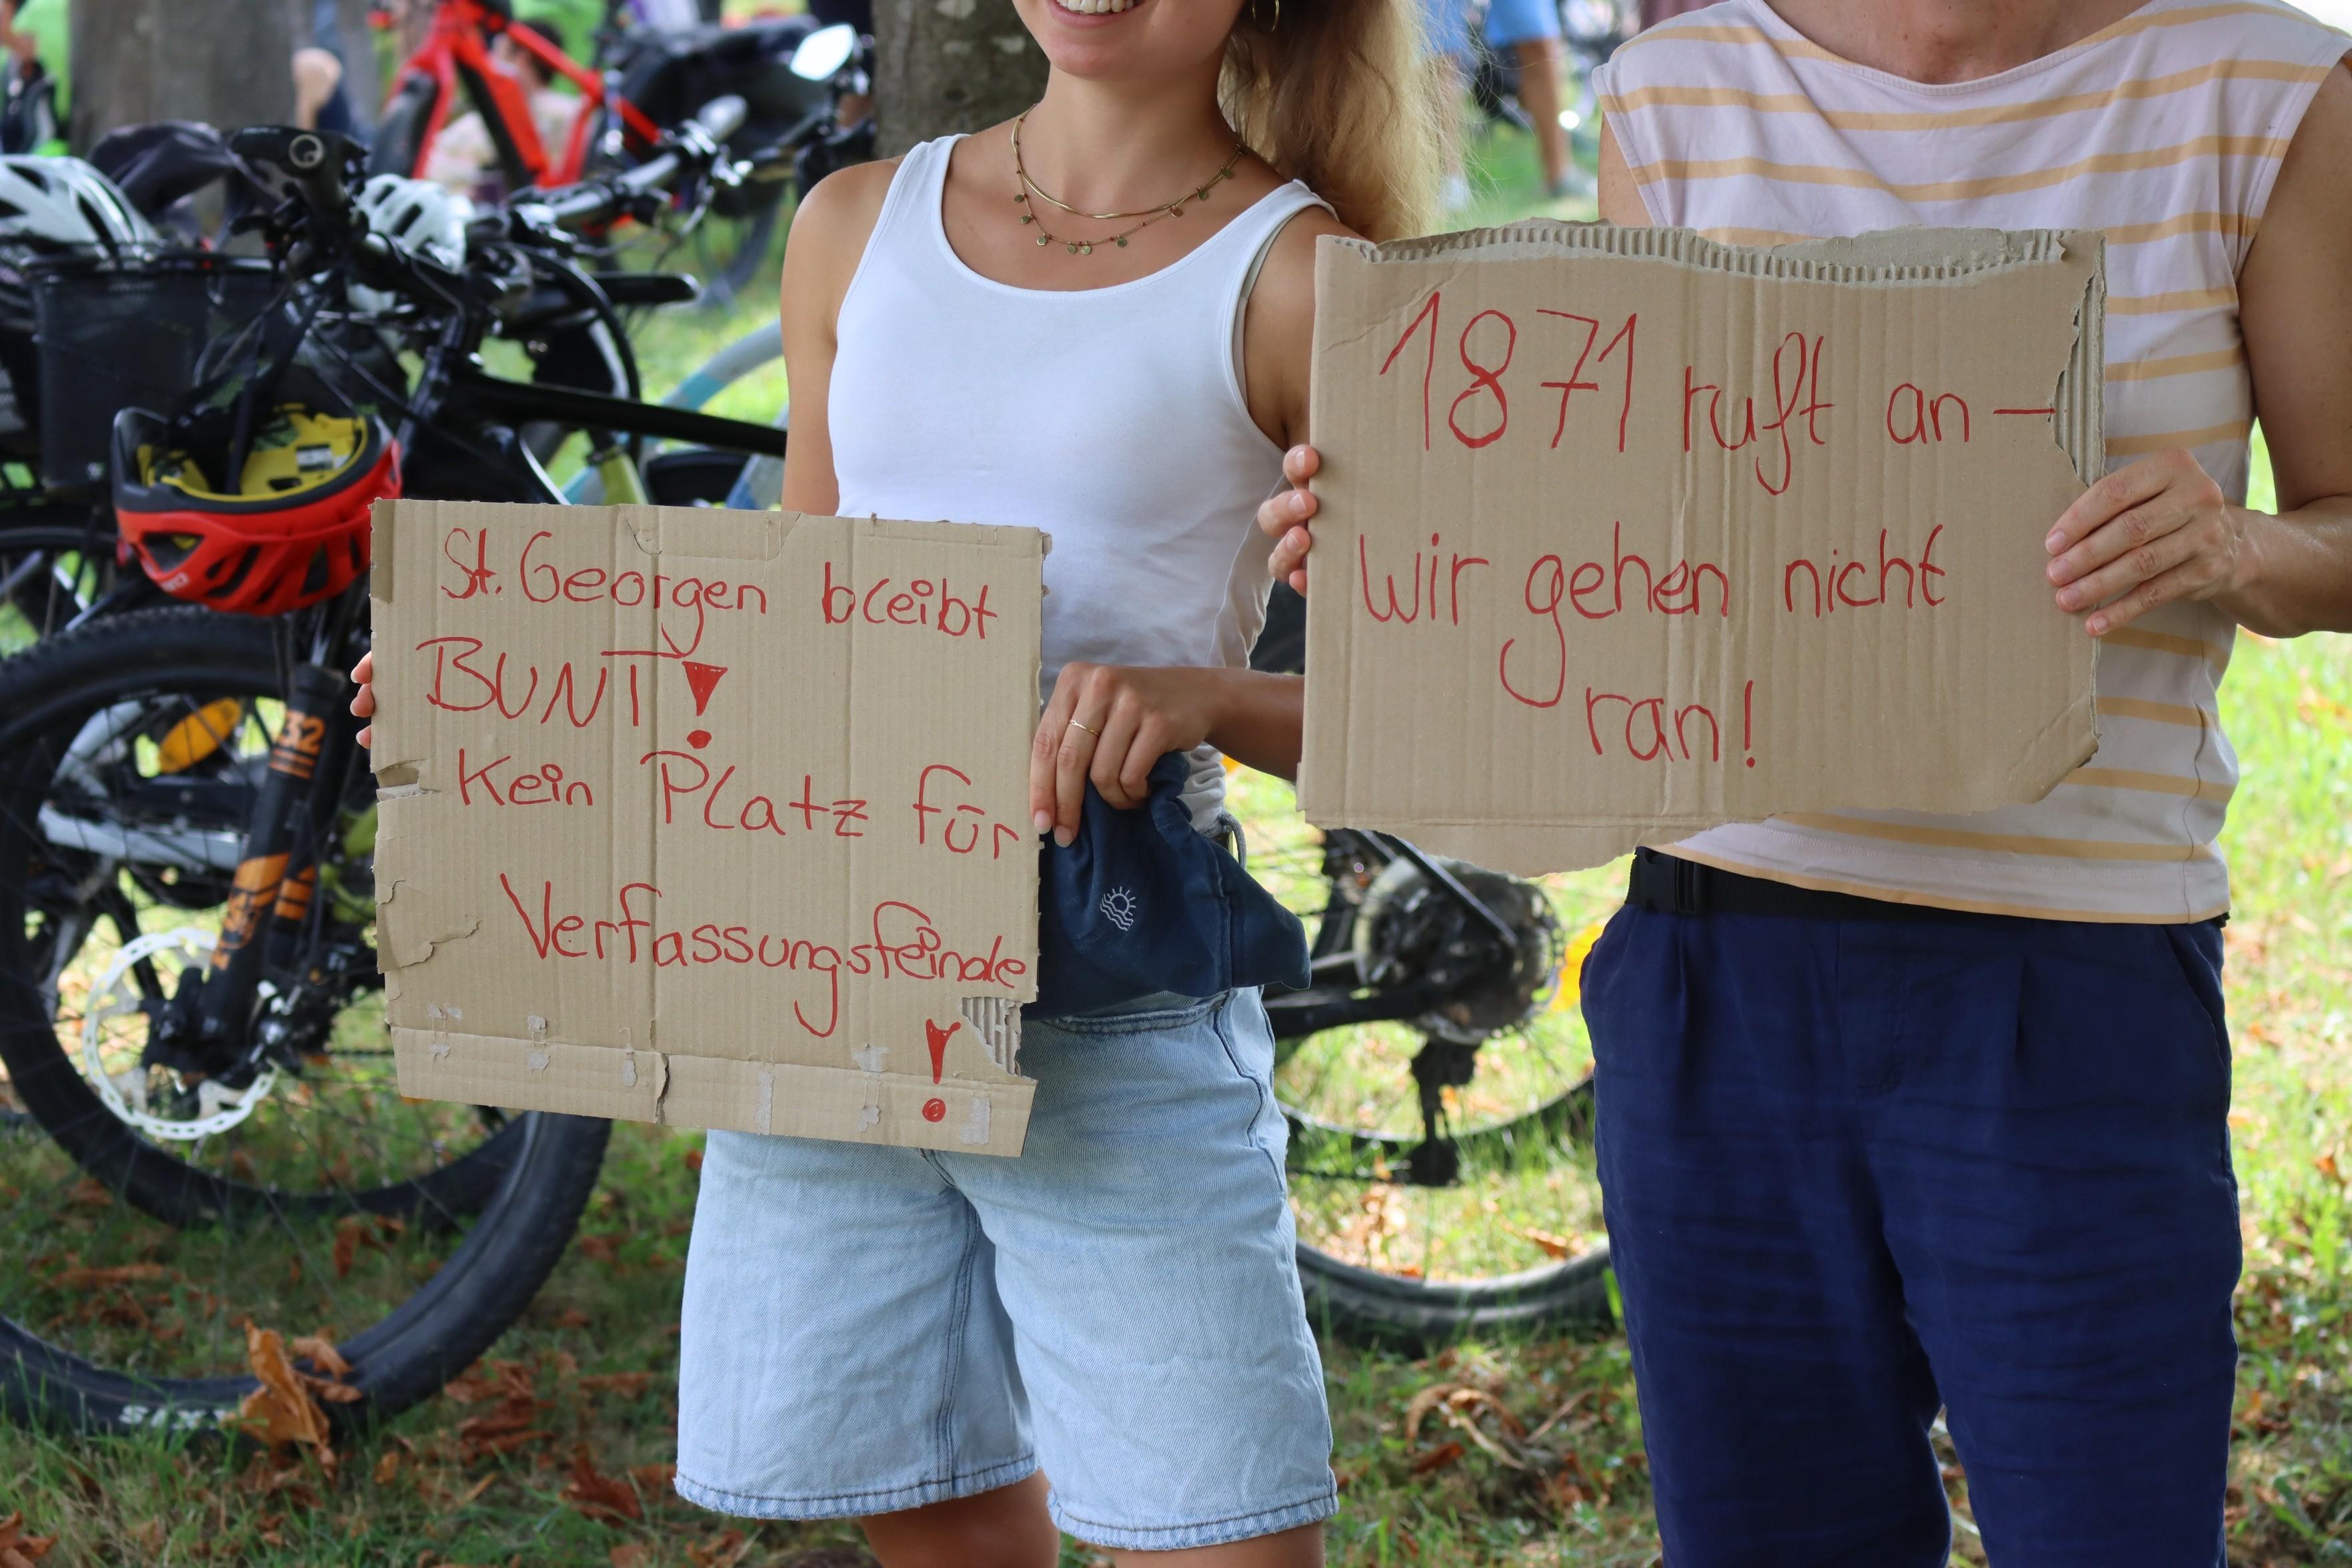 St. Georgen bleibt
BUNT!
Kein Platz für
Verfassungsfeinde
!
1871 ruft an –
wir gehen nicht
ran!
32